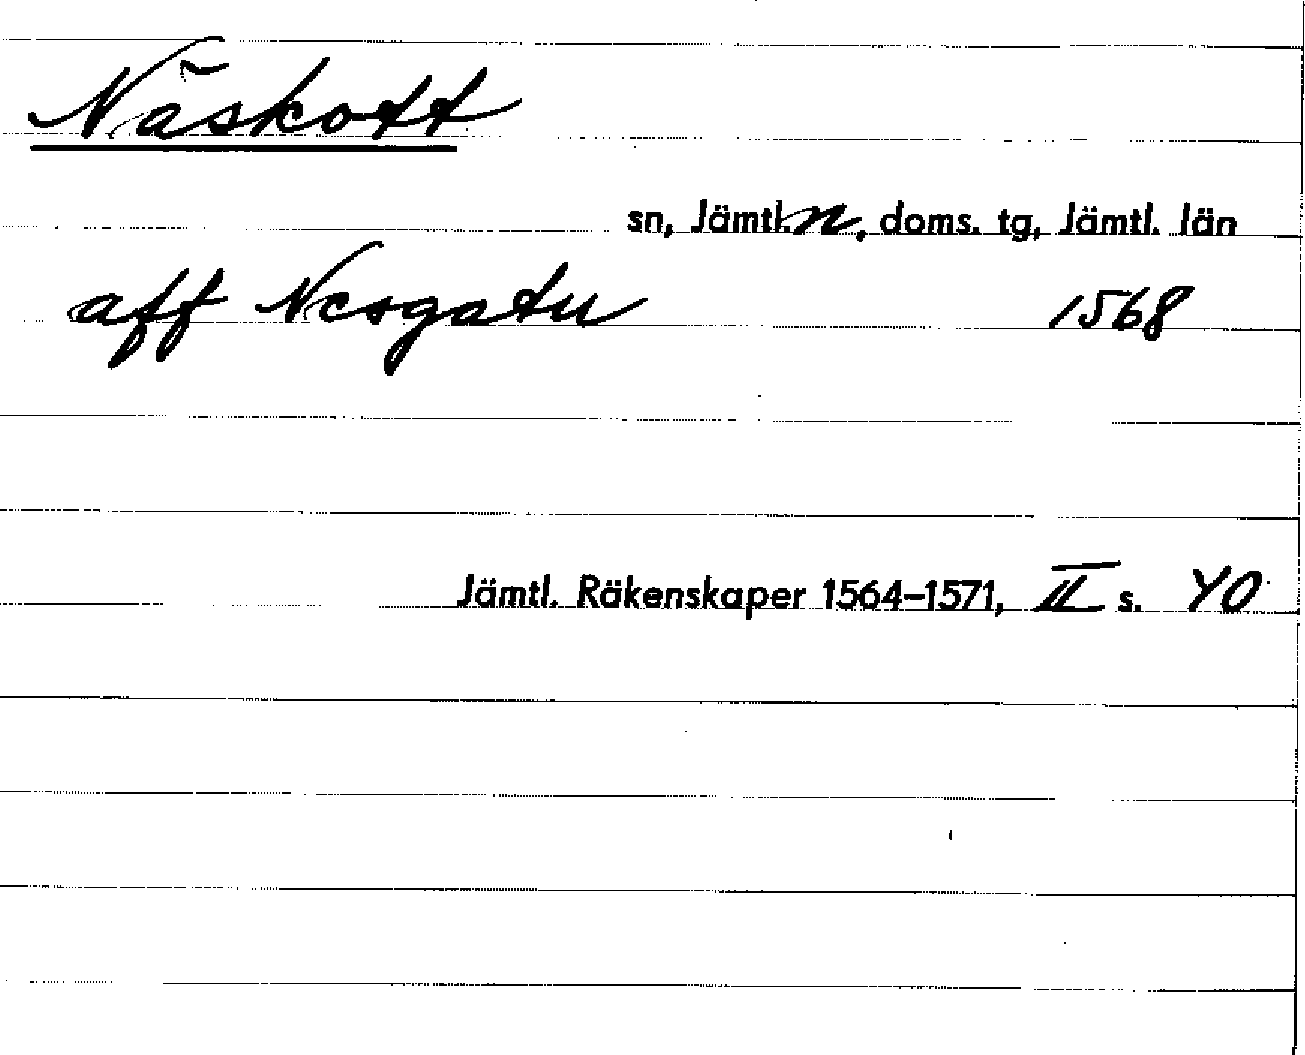 Näskott
sn, Jämtl. n, doms. tg, Jämtl. län
aff Nesgatu 1568
Jämtl. Räkenskaper 1564–1571, II s. 40